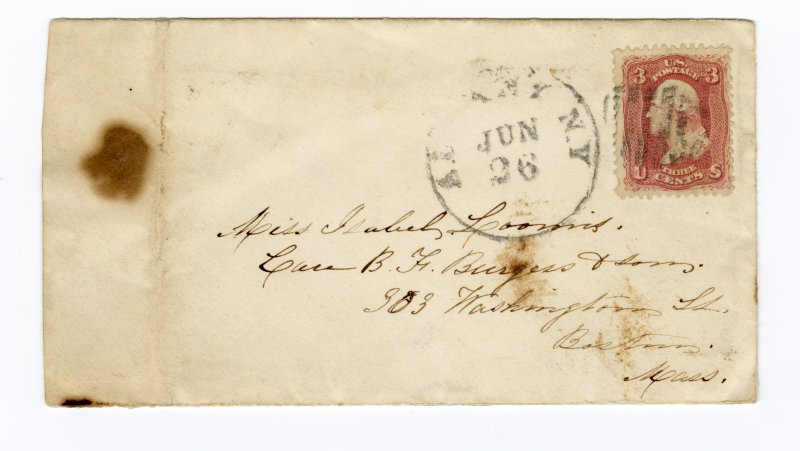 ALBANY N.Y.
JUN
26
3 U.S. POSTAGE 3
U THREE CENTS S
Miss Isabel Loomis.
Care B. F. Burgess & Sons.
303 Washington St.
Boston.
Mass.